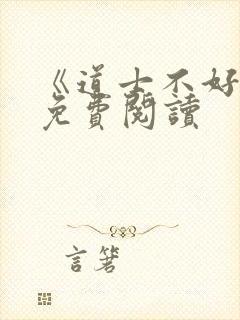 《道士不好
免費閱讀
言箬